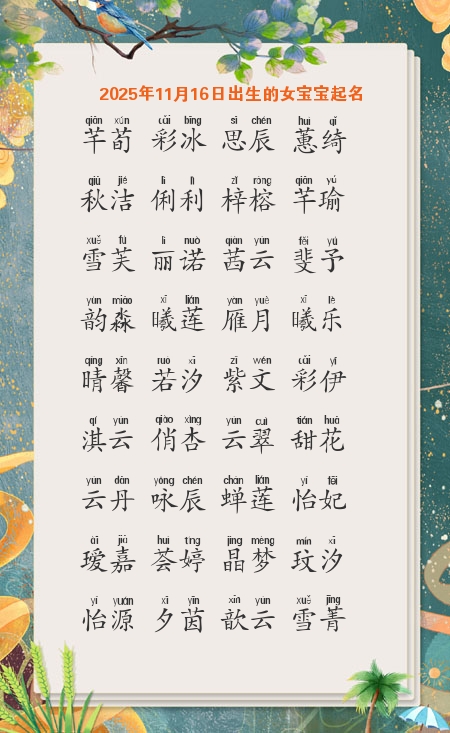 2025年11月16日出生的女宝宝起名
qiān xún cǎi bīng sī chén huì qǐ
芊荀 彩冰 思辰 蕙绮
qiū jié lì lì zǐ róng qiān yú
秋洁 俐利 梓榕 芊瑜
xuě fú lì nuò qiàn yún fěi yú
雪芙 丽诺 茜云 斐予
yùn miǎo xī lián yàn yuè xī lè
韵淼 曦莲 雁月 曦乐
qíng xīn ruò xī zǐ wén cǎi yī
晴馨 若汐 紫文 彩伊
qí yún qiào xìng yún cuì tián huā
淇云 俏杏 云翠 甜花
yún dān yǒng chén chán lián yí fēi
云丹 咏辰 蝉莲 怡妃
ài jiā huì tíng jīng mèng mín xī
瑷嘉 荟婷 晶梦 玟汐
yí yuán xī yīn xīn yún xuě jīng
怡源 夕茵 歆云 雪菁